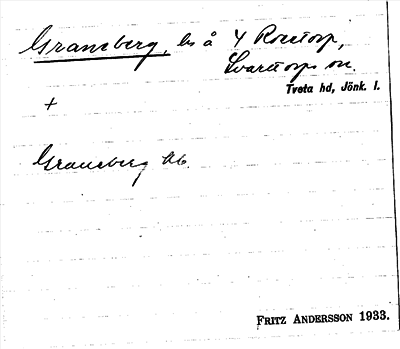 Gransberg, ls å Y Rosstorp,
Svarttorps sn.
Tveta hd, Jönk. l.
+
Gransberg Ab.
FRITZ ANDERSSON 1933.